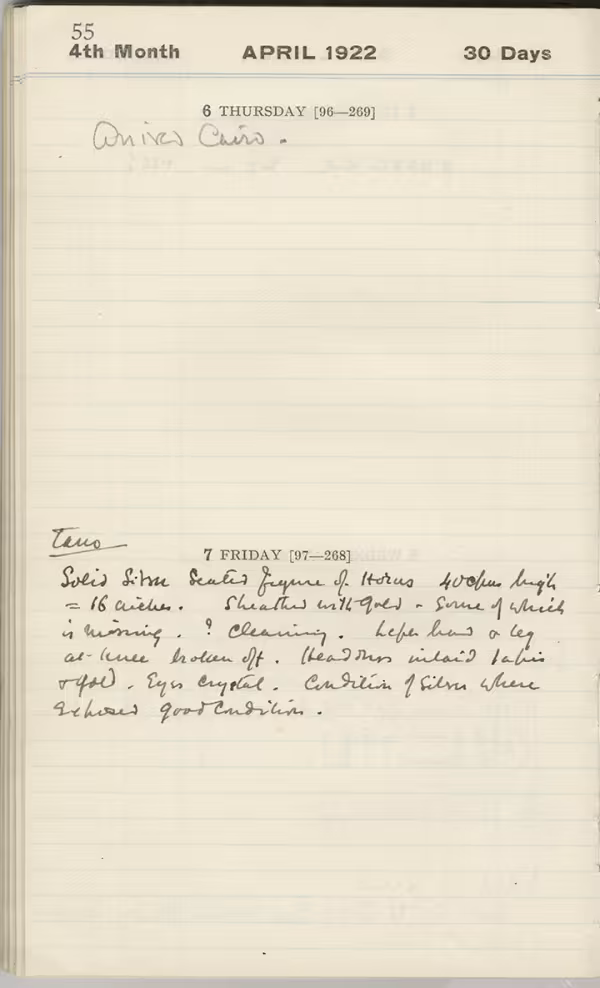 55
4th Month APRIL 1922 30 Days
6 THURSDAY [96—269]
Arrived Cairo.
Tano
7 FRIDAY [97—268]
Solid Silver Seated figure of Horus 40 c/ms high
= 16 inches. Sheathed with gold - Some of which
is missing. ? Cleaning. Left hand & leg
at knee broken off. Headdress inlaid lapis
& gold. Eyes crystal. Condition of Silver where
exposed good condition.